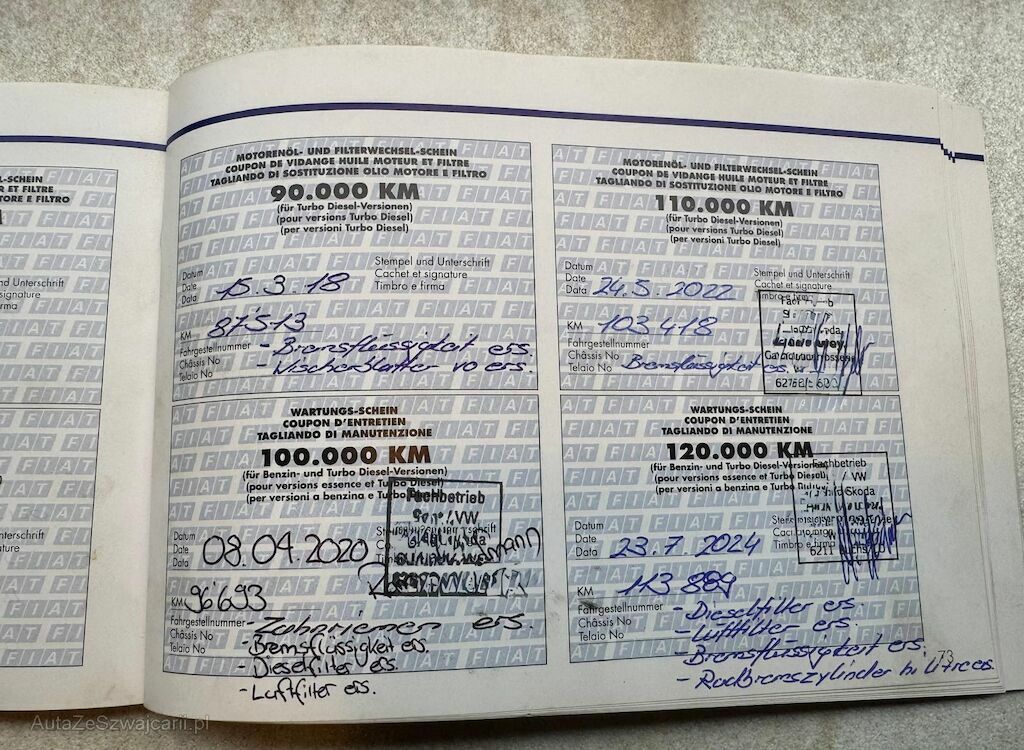 MOTORENÖL- UND FILTERWECHSEL-SCHEIN
COUPON DE VIDANGE HUILE MOTEUR ET FILTRE
TAGLIANDO DI SOSTITUZIONE OLIO MOTORE E FILTRO
90.000 KM
(für Turbo Diesel-Versionen)
(pour versions Turbo Diesel)
(per versioni Turbo Diesel)
Stempel und Unterschrift
Cachet et signature
Timbro e firma
Datum
Date
Data 15.3.18
KM 87'513
Fahrgestellnummer - Bremsflüssigkeit ers.
Châssis No - Wischerblätter vo ers.
Telaio No
WARTUNGS-SCHEIN
COUPON D'ENTRETIEN
TAGLIANDO DI MANUTENZIONE
100.000 KM
(für Benzin- und Turbo Diesel-Versionen)
(pour versions essence et Turbo Diesel)
(per versioni a benzina e Turbo
Fachbetrieb
VW
Datum
Date
Data 08.04.2020
KM 96'693
Fahrgestellnummer - Zahnriemen ers.
Châssis No - Bremsflüssigkeit ers.
Telaio No - Dieselfilter ers.
- Luftfilter ers.
MOTORENÖL- UND FILTERWECHSEL-SCHEIN
COUPON DE VIDANGE HUILE MOTEUR ET FILTRE
TAGLIANDO DI SOSTITUZIONE OLIO MOTORE E FILTRO
110.000 KM
(für Turbo Diesel-Versionen)
(pour versions Turbo Diesel)
(per versioni Turbo Diesel)
Stempel und Unterschrift
Cachet et signature
Timbro e firma
Datum
Date
Data 24.5.2022
KM 103 418
Fahrgestellnummer
Châssis No
Telaio No Bremsflüssigkeit ers.
WARTUNGS-SCHEIN
COUPON D'ENTRETIEN
TAGLIANDO DI MANUTENZIONE
120.000 KM
(für Benzin- und Turbo Diesel-Versionen)
(pour versions essence et Turbo Diesel)
(per versioni a benzina e Turbo
Fachbetrieb
VW
Skoda
6211 Buchs LU
Datum
Date
Data 23.7.2024
KM 113 889
Fahrgestellnummer - Dieselfilter ers.
Châssis No - Luftfilter ers.
Telaio No - Bremsflüssigkeit ers.
- Radbremszylinder
73
AutaZeSzwajcarii.pl